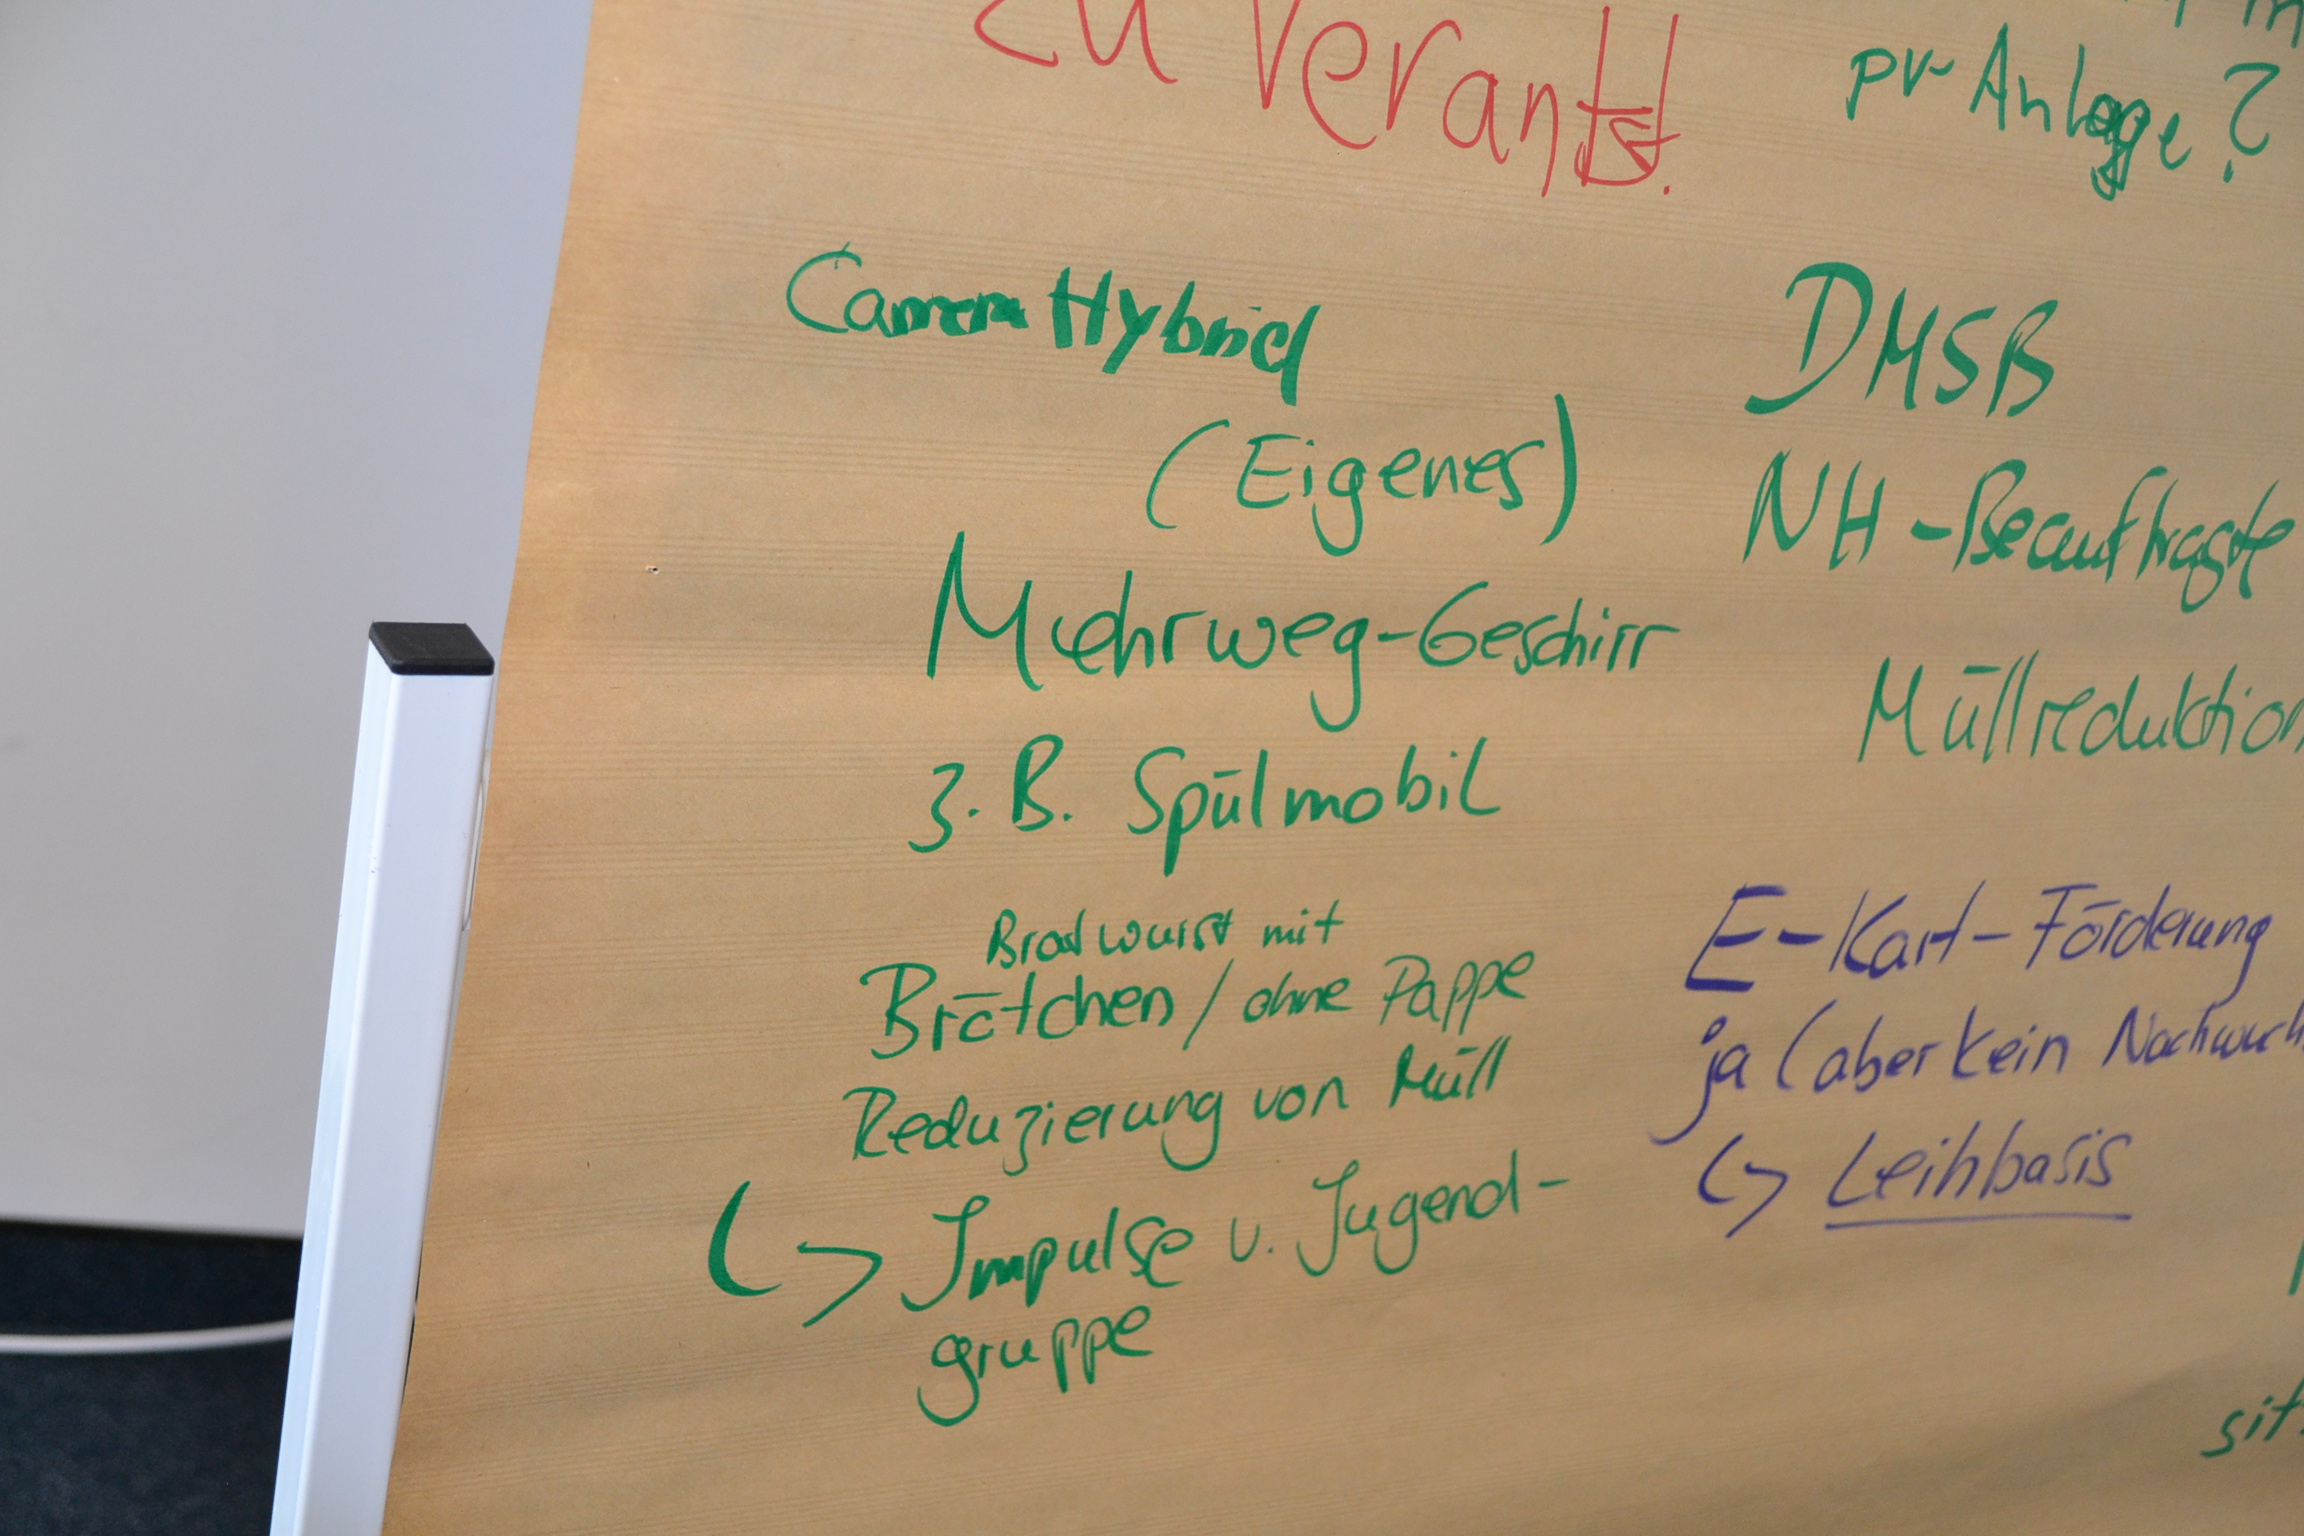 zu Verantst.
PV-Anlage?
Hybrid
(Eigenes)
Mehrweg-Geschirr
z.B. Spülmobil
Bradwurst mit
Brötchen / ohne Pappe
Reduzierung von Müll
↳ Impulse v. Jugend-
gruppe
DMSB
NH-Beauftragte
Müllreduktion
E-Kart-Förderung
ja (aber kein
↳ Leihbasis